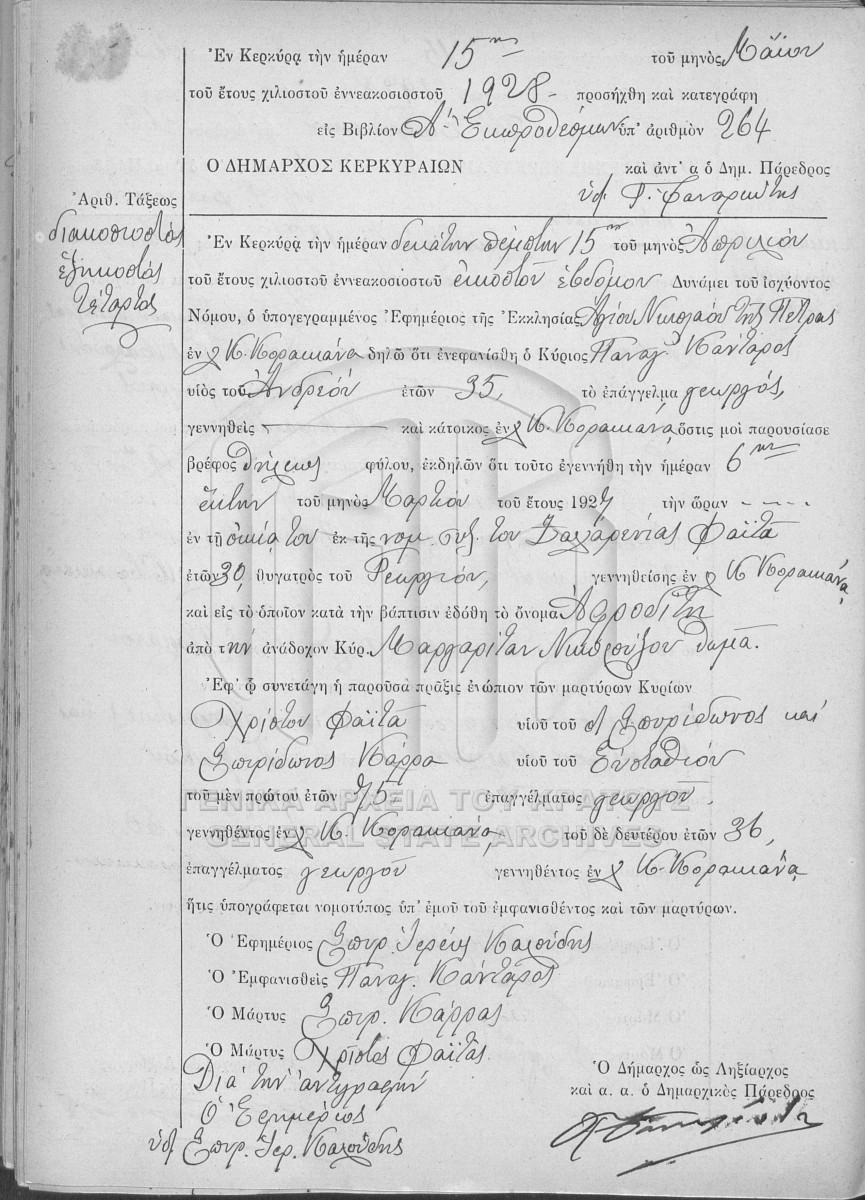 Ἐν Κερκύρᾳ τὴν ἡμέραν 15ην τοῦ μηνὸς Μαΐου
τοῦ ἔτους χιλιοστοῦ ἐννεακοσιοστοῦ 1928 προσήχθη καὶ κατεγράφη
εἰς Βιβλίον Α. Ἐκπροθέσμων ὑπ' ἀριθμὸν 264
Ο ΔΗΜΑΡΧΟΣ ΚΕΡΚΥΡΑΙΩΝ καὶ ἀντ' α ὁ Δημ. Πάρεδρος
Ἀριθ. Τάξεως
διακοσιοστός
ἑξηκοστός
τέταρτος
Ἐν Κερκύρᾳ τὴν ἡμέραν δεκάτην πέμπτην 15ην τοῦ μηνὸς Ἀπριλίου
τοῦ ἔτους χιλιοστοῦ ἐννεακοσιοστοῦ εἰκοστοῦ ἑβδόμου Δυνάμει τοῦ ἰσχύοντος
Νόμου, ὁ ὑπογεγραμμένος Ἐφημέριος τῆς Ἐκκλησίας Ἁγίου Νικολάου τῆς Πέτρας
ἐν Κ. Κορακιάνᾳ δηλῶ ὅτι ἐνεφανίσθη ὁ Κύριος Παναγ. Κάνταρος
υἱὸς τοῦ Ἀνδρέου ἐτῶν 35, τὸ ἐπάγγελμα γεωργός,
γεννηθεὶς καὶ κάτοικος ἐν Κ. Κορακιάνᾳ, ὅστις μοὶ παρουσίασε
βρέφος θήλεως φύλου, ἐκδηλῶν ὅτι τοῦτο ἐγεννήθη τὴν ἡμέραν 6ην
ἕκτην τοῦ μηνὸς Μαρτίου τοῦ ἔτους 1927 τὴν ὥραν - - - -
ἐν τῇ οἰκίᾳ του ἐκ τῆς νομ. συζ. του Φαϊτᾶ
ἐτῶν 30, θυγατρὸς τοῦ Γεωργίου, γεννηθείσης ἐν Κ. Κορακιάνᾳ,
καὶ εἰς τὸ ὁποῖον κατὰ τὴν βάπτισιν ἐδόθη τὸ ὄνομα Ἀφροδίτη
ἀπὸ τὴν ἀνάδοχον Κύρ. Μαργαρίταν Θωμᾶ.
Ἐφ' ᾧ συνετάγη ἡ παροῦσα πρᾶξις ἐνώπιον τῶν μαρτύρων Κυρίων
Χρίστου Φαϊτᾶ υἱοῦ τοῦ Σπυρίδωνος καὶ
Σπυρίδωνος Κάρρα υἱοῦ τοῦ Εὐσταθίου
τοῦ μὲν πρώτου ἐτῶν 75 ἐπαγγέλματος γεωργοῦ,
ΓΕΝΙΚΑ ΑΡΧΕΙΑ ΤΟΥ ΚΡΑΤΟΥΣ
γεννηθέντος ἐν Κ. Κορακιάνᾳ, τοῦ δὲ δευτέρου ἐτῶν 36,
GENERAL STATE ARCHIVES
ἐπαγγέλματος γεωργοῦ γεννηθέντος ἐν Κ. Κορακιάνᾳ,
ἥτις ὑπογράφεται νομοτύπως ὑπ' ἐμοῦ τοῦ ἐμφανισθέντος καὶ τῶν μαρτύρων.
Ὁ Ἐφημέριος Σπυρ. Ἱερεὺς Καλούδης
Ὁ Ἐμφανισθεὶς Παναγ. Κάνταρος
Ὁ Μάρτυς Σπυρ. Κάρρας
Ὁ Μάρτυς Χρῖστος Φαϊτᾶς
Διὰ τὴν ἀντιγραφὴν
Ὁ Ἐφημέριος
ὑφ. Σπυρ. Ἱερ. Καλούδης
Ὁ Δήμαρχος ὡς Ληξίαρχος
καὶ α. α. ὁ Δημαρχικὸς Πάρεδρος